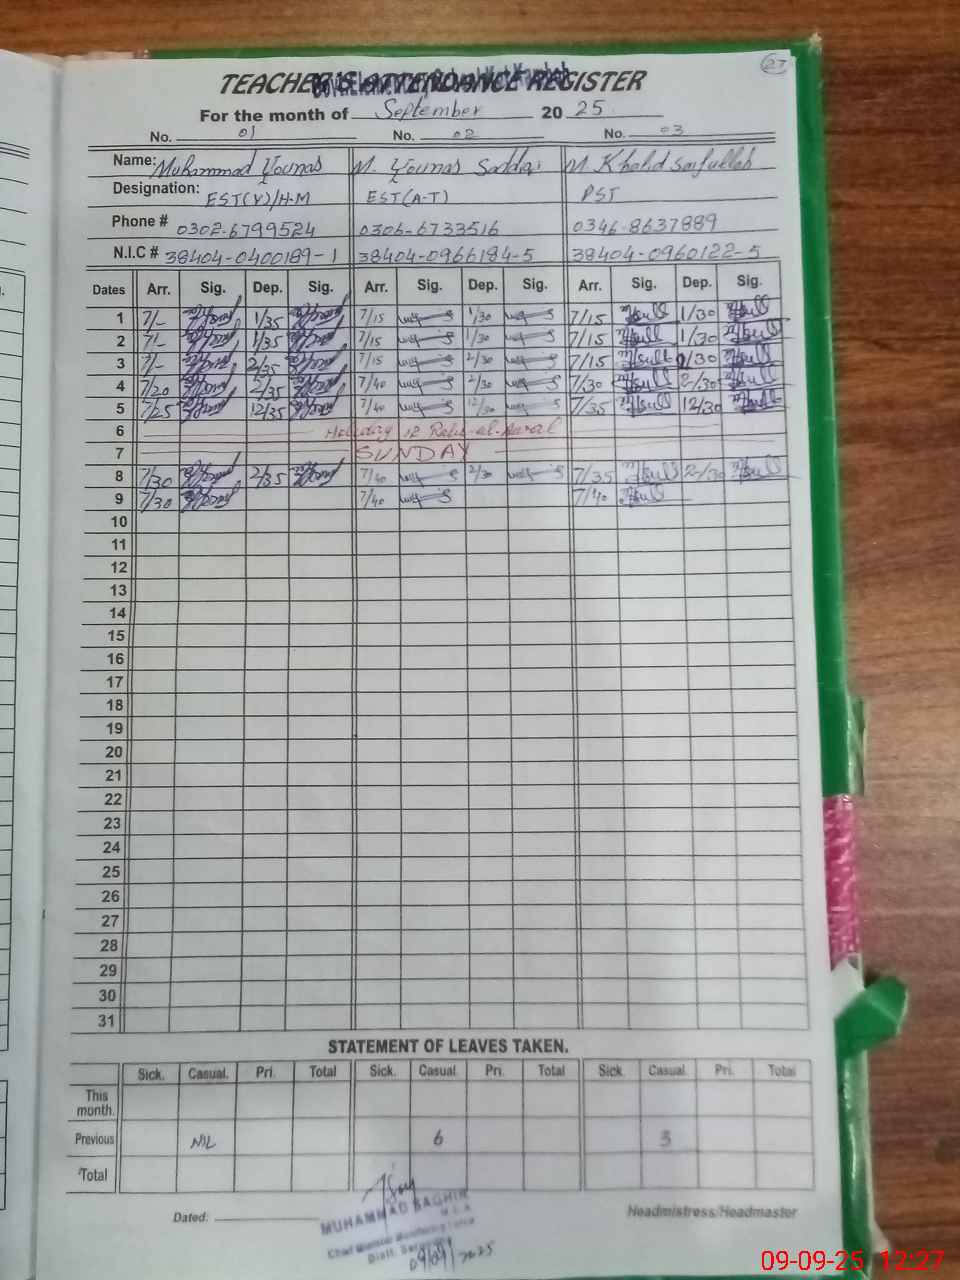 27
TEACHER'S ATTENDANCE REGISTER
For the month of September 2025
No. 01 No. 02 No. 03
Name: Muhammad Younas M. Younas M. Khalid Saifullah
Designation: EST(V)/H.M EST(A-T) PST
Phone # 0302-6799524 0306-6733516 0346-8637889
N.I.C # 38404-0400189-1 38404-0966184-5 38404-0960122-5
Dates Arr. Sig. Dep. Sig. Arr. Sig. Dep. Sig. Arr. Sig. Dep. Sig.
1 7/- 1/35 7/15 1/30 7/15 1/30
2 7/- 1/35 7/15 1/30 7/15 1/30
3 7/- 2/35 7/15 2/30 7/15 2/30
4 7/20 2/35 7/40 2/30 7/30 2/30
5 7/25 12/35 7/40 12/30 7/35 12/30
6 Holiday 12 Rabi-ul-Awal
7 SUNDAY
8 7/30 2/35 7/40 2/30 7/35 2/30
9 7/30 7/40 7/40
10
11
12
13
14
15
16
17
18
19
20
21
22
23
24
25
26
27
28
29
30
31
STATEMENT OF LEAVES TAKEN.
Sick. Casual. Pri. Total Sick. Casual. Pri. Total Sick. Casual. Pri. Total
This month.
Previous NIL 6 3
Total
Dated: Headmistress/Headmaster
MUHAMMAD BAGHIR
M.E.A
Chief Minister Monitoring Force
Distt. Sargodha
09/09/2025
09-09-25 12:27